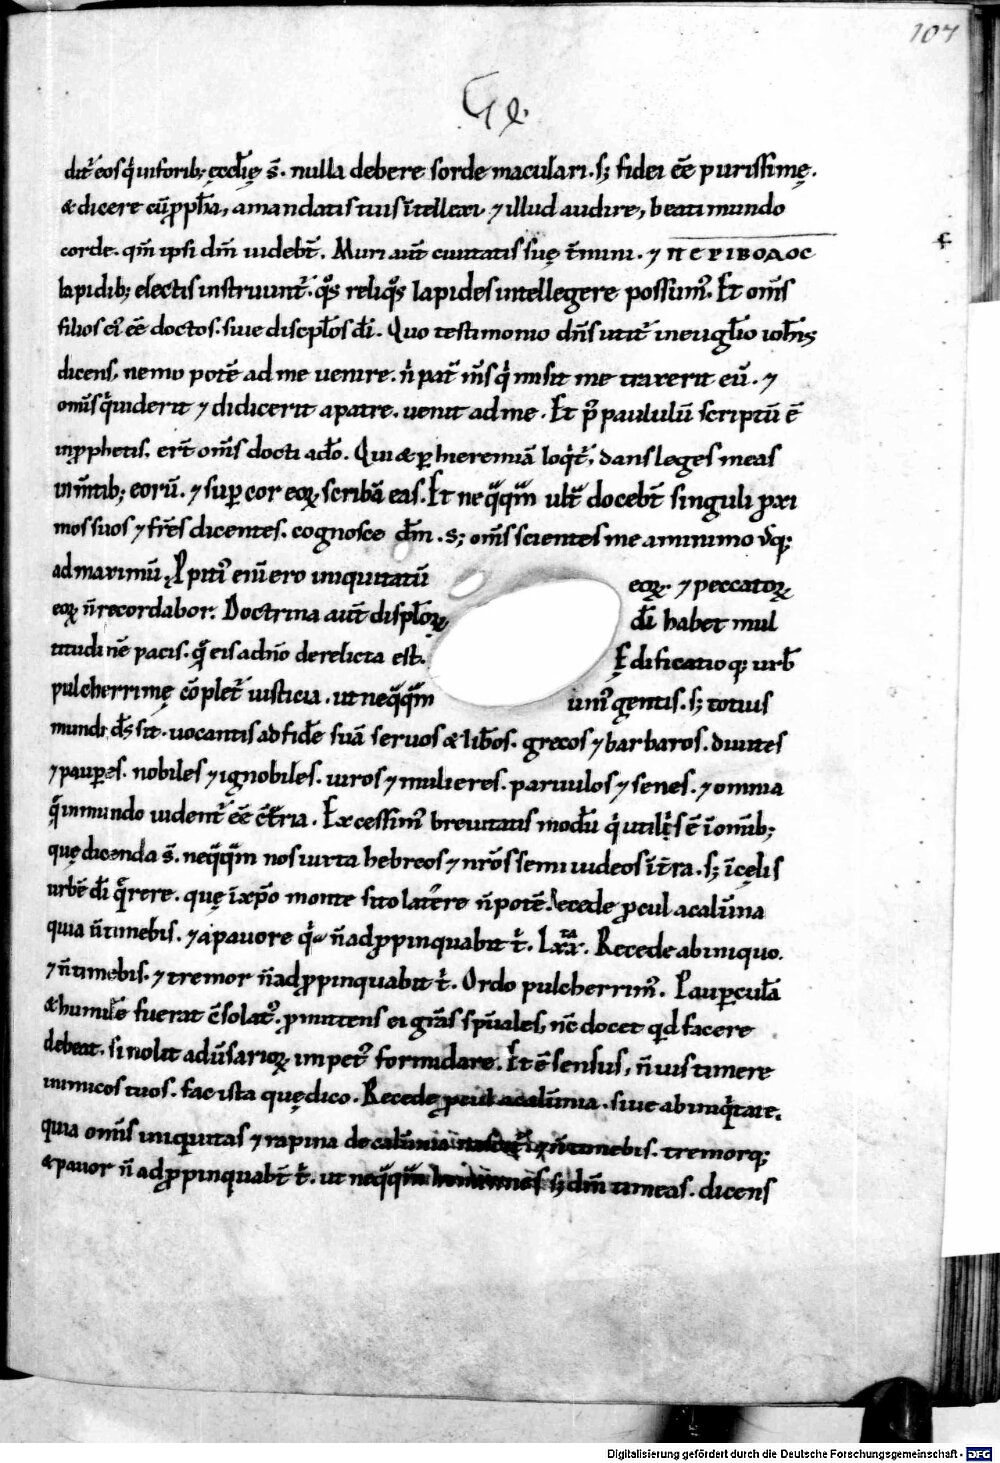 107
dit̄ eos q̇ in forib; ęcclię s̄. nulla debere sorde maculari. s; fidei eē purissimę.
& dicere cū ꝓph̄a, a mandatis tuis ītellexi. ⁊ illud audire, beati mundo
corde. qm̄ ipsi dm̄ uidebt̄. Muri aut̄ ciuitatis suę t̄mini. ⁊ ΠΕΡΙΒΟΛΟC
lapidib; electis instruunt̄. q̊s reliq̊s lapides intellegere possum᷒. Et om̄s
filios ei᷒ eē doctos. siue discipl̄os dī. Quo testimonio dn̄s utit̄ in eugl̄io ioh̄is
dicens, nemo potē ad me uenire. n̄ pat̄ m̄s q̇ misit me traxerit eū. ⁊
om̄s q̇ uiderit ⁊ didicerit a patre. uenit ad me. Et p̄ paululū scriptū ē
in ꝓphetis. ert̄ om̄s docti a dō. Qui & ꝑ hieremiā loq̇t̄, dans leges meas
in m̄tib; eorū. ⁊ suꝑ cor eoꝝ scribā eas. Et neq̄q̄m ult̄ docebt̄ singuli ꝓxi
mos suos ⁊ fr̄es dicentes. cognosce dm̄. s; om̄s scient me a minimo usq;
ad maximū. ꝓpiti᷒ eni ero iniquitatū eoꝝ. ⁊ peccatoꝝ
eoꝝ n̄ recordabor. Doctrina aut̄ discipl̄oꝝ dī habet mul
titudinē pacis. q̄ eis a dn̄o derelicta est. Ędificatioq; urb̄
pulcherrimę cōplet̄ iusticia. ut neq̄q̄m uni᷒ gentis. s; totius
mundi ds̄ sit. uocantis ad fidē suā seruos & lib̄os. grecos ⁊ barbaros. diuites
⁊ pauꝑes. nobiles ⁊ ignobiles. uiros ⁊ mulieres. paruulos ⁊ senes. ⁊ omnia
q̄ in mundo uident̄ eē c̄t̄ria. Excessim᷒ breuitatis modū q̇ utilis ē ī om̄ib;
quę dicenda s̄. neq̄q̄m nos iuxta hebreos ⁊ nr̄os semiiudeos ī t̄ra. s; ī cęlis
urbē dī q̄rere. quę ī xp̄o monte sito latēre n̄ potē. Recede ꝓcul a calūnia
quia n̄ timebis. ⁊ a pauore q̇a n̄ adꝓpinquabit t̄. Lxx̄. Recede ab iniquo.
⁊ n̄ timebis. ⁊ tremor n̄ adꝓpinquabit t̄. Ordo pulcherrim᷒. Pauꝑculā
& humilē fuerat c̄solat᷒. ꝓmittens ei gr̄as sp̄uales, nc̄ docet qd̄ facere
debeat. si nolit adūsarioꝝ impet᷒ formidare. Et ē sensus, n̄ uis timere
inimicos tuos. fac ista quę dico. Recede ꝓcul a calūnia. siue ab iniq̇tate.
quia om̄s iniquitas ⁊ rapina de calūnia nascit̄ ⁊ n̄ timebis. tremorq;
& pauor n̄ adꝓpinquabt̄ t̄. ut neq̄q̄m homines s; dm̄ timeas. dicens
Digitalisierung gefördert durch die Deutsche Forschungsgemeinschaft - DFG